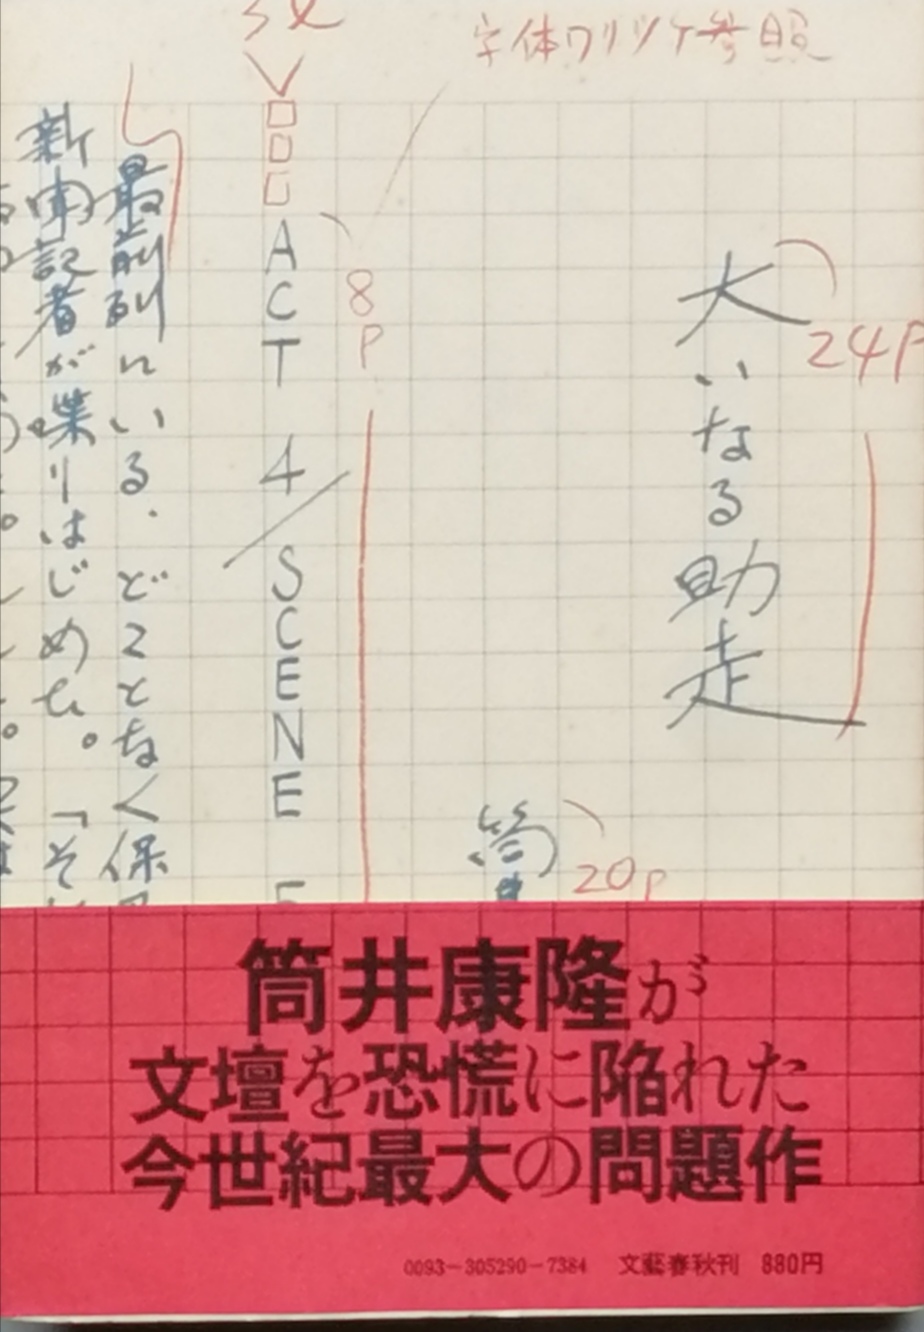 字体ワリツケ参照
大いなる助走
24P
筒
20P
8P
3ℓ
ACT 4/SCENE
最前列にいる、どことなく保
新聞記者が喋りはじめた。「そ
筒井康隆が
文壇を恐慌に陥れた
今世紀最大の問題作
0093-305290-7384 文藝春秋刊 880円